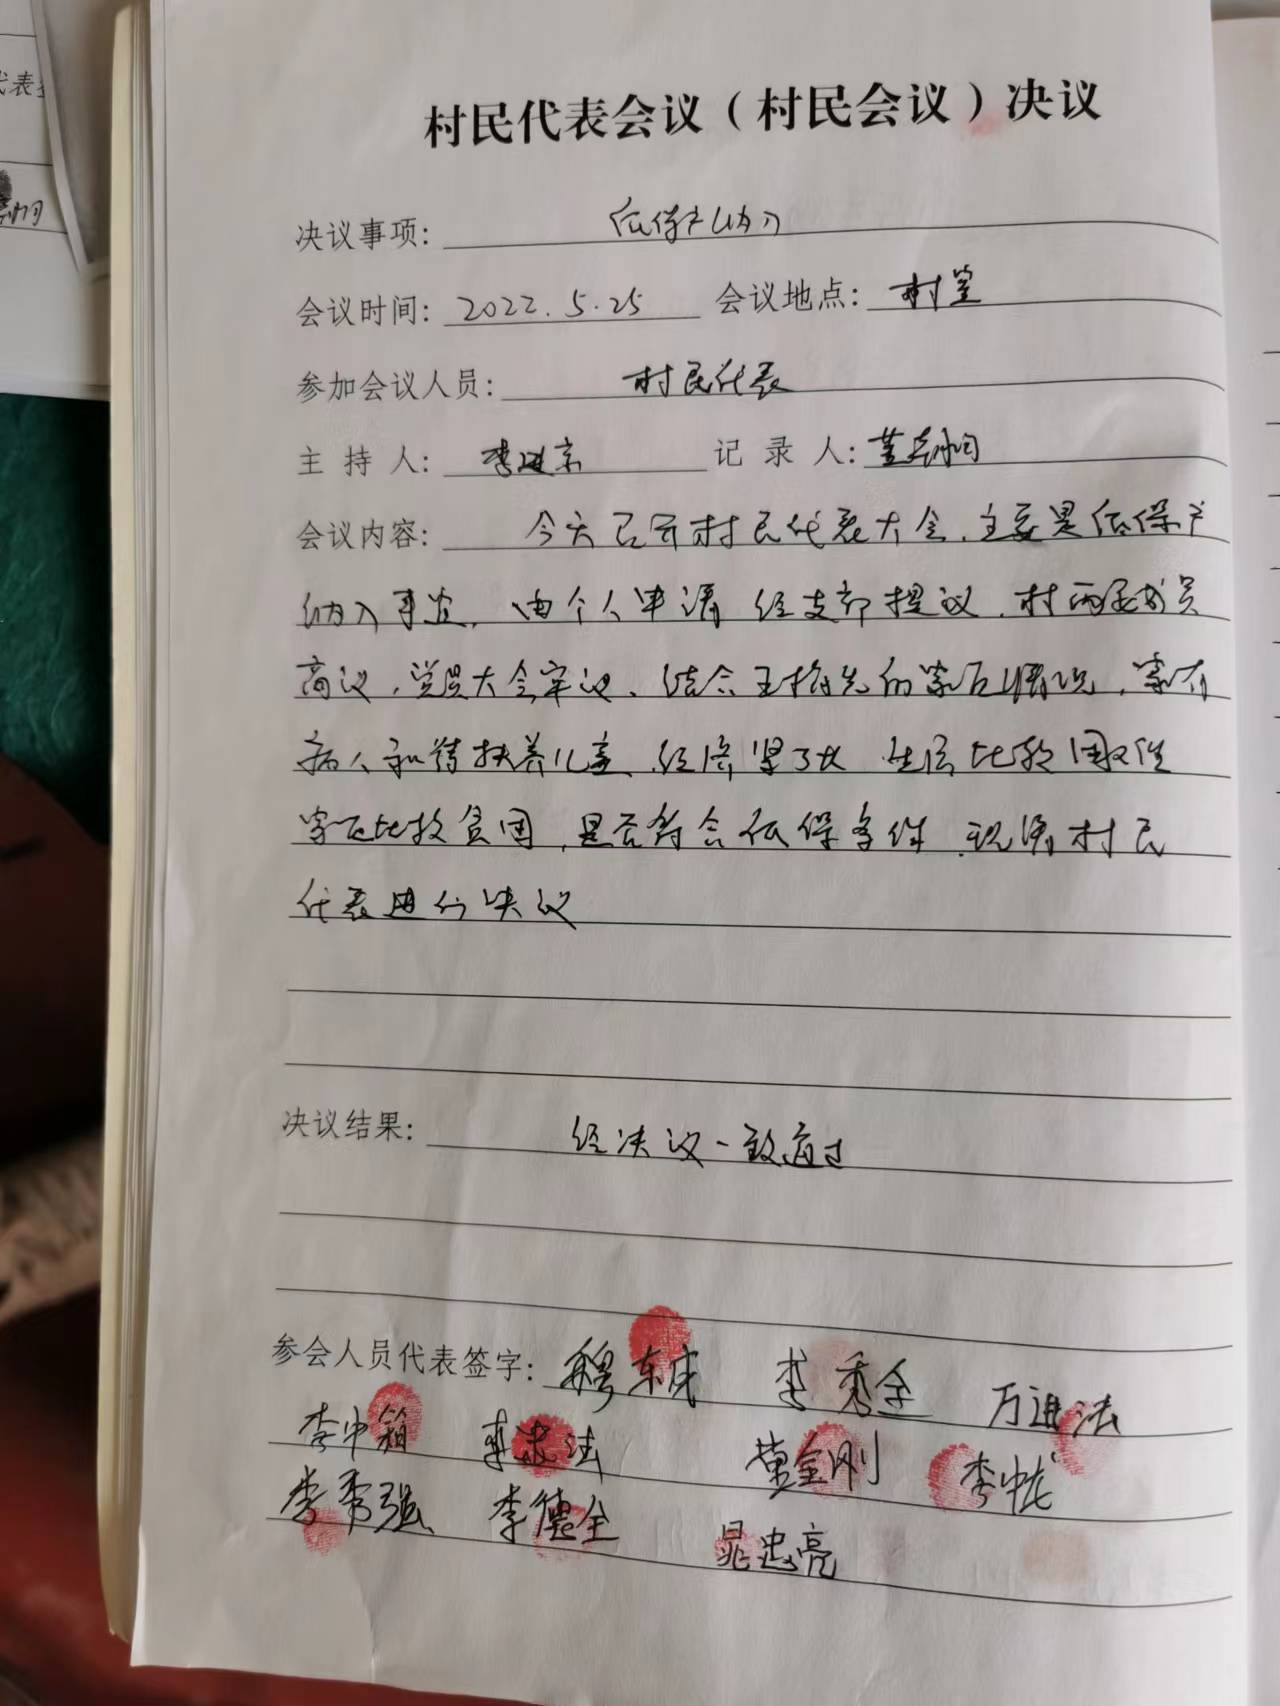 代表
村民代表会议（村民会议）决议
决议事项：低保户纳入
会议时间：2022.5.25 会议地点：村室
参加会议人员：村民代表
主持人：李进京 记录人：董
会议内容：今天召开村民代表大会，主要是低保户
纳入事宜，由个人申请 经支部提议，村两委成员
商议，党员大会审议、结合王 先的家庭情况，家有
病人和待扶养儿童、经济 生活比较困难
家庭比较贫困，是否符合低保条件 现请村民
代表进行决议
决议结果：经决议一致通过
参会人员代表签字：穆东成 李秀全 万进法
李中 法 黄金刚 李中龙
李秀强 李德全 晁忠亮